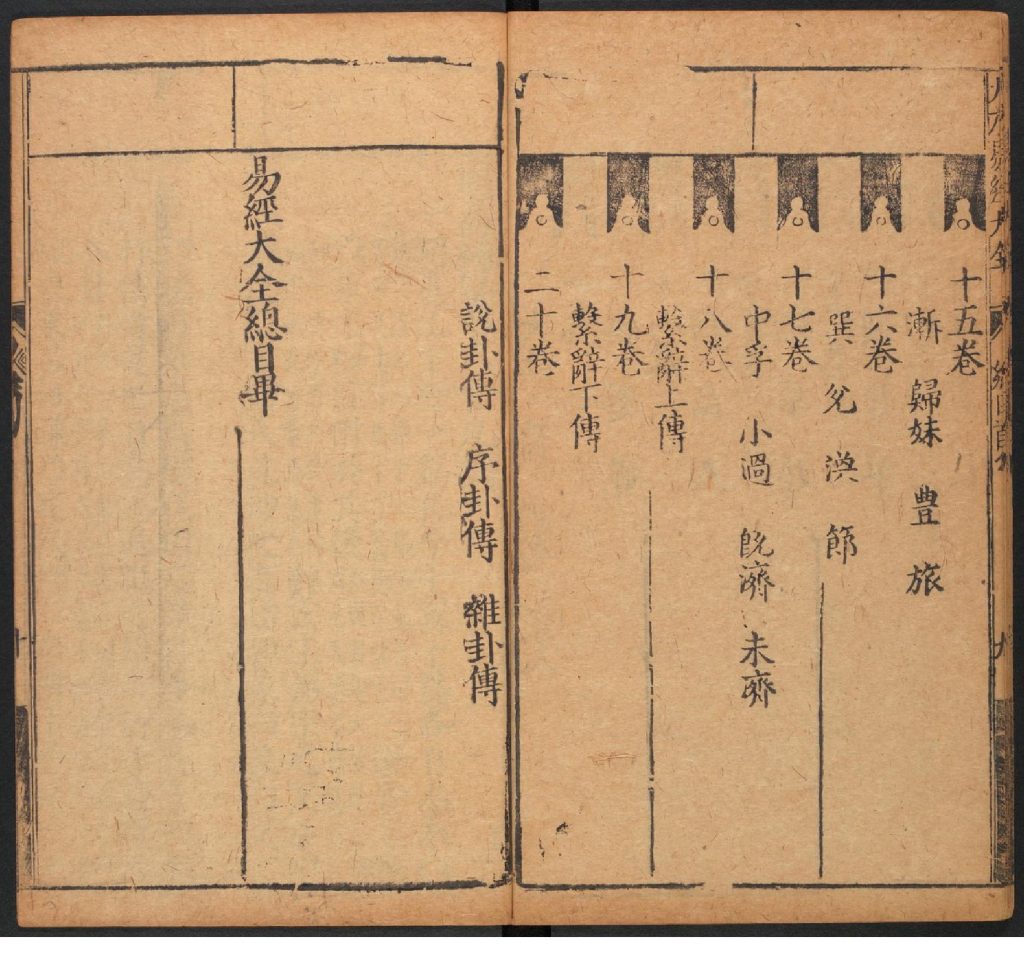 十五卷
漸 歸妹 豊 旅
十六卷
巽 兌 渙 節
十七卷
中孚 小過 旣濟 未濟
十八卷
繫辭上傳
十九卷
繫辭下傳
二十卷
說卦傳 序卦傳 雜卦傳
易經大全總目畢